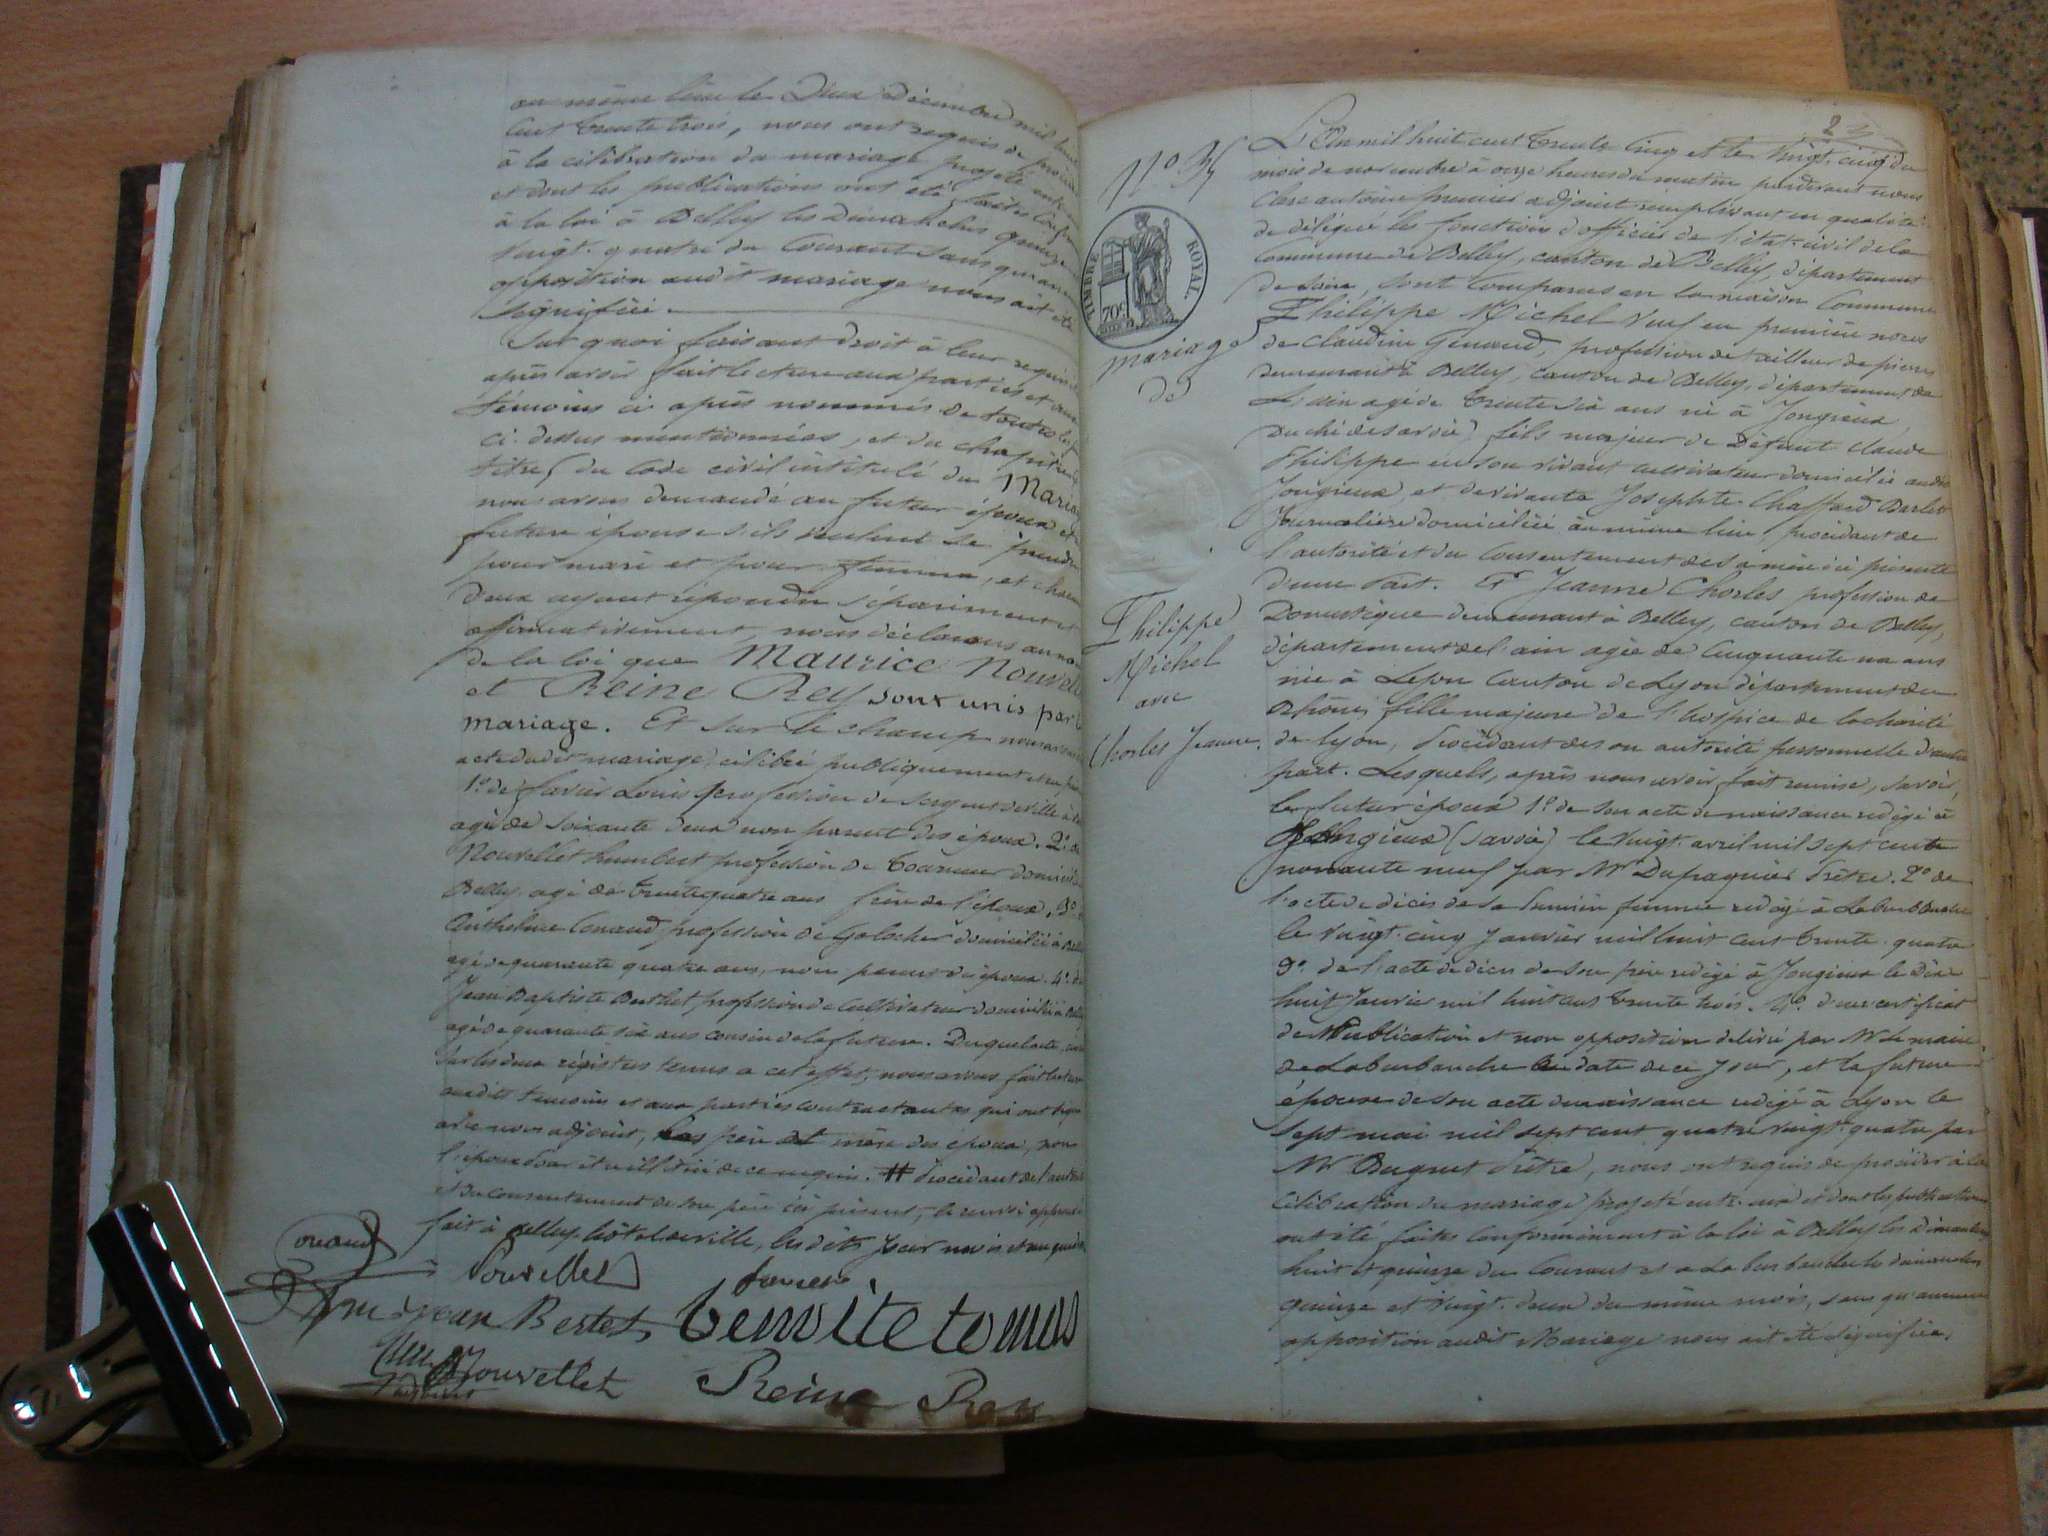 au même lieu le Deux Décembre mil huit
cent trente trois, nous ont requis de procéder
à la célébration du mariage projeté entre eux
et dont les publications ont été faites
à la loi à Belley les Dimanches quinze
Vingt quatre du Courant sans qu'aucune
opposition audit mariage nous ait été
signifiée.
Sur quoi faisant droit à leur
après avoir fait lecture aux parties et
témoins ci après nommés de toutes les
ci dessus mentionnées, et du chapitre
titre du Code civil intitulé du Mariage
nous avons demandé au futur époux et
future épouse s'ils veulent se prendre
pour mari et pour femme, et chacun
deux ayant répondu séparément et
affirmativement, nous déclarons au nom
de la loi que Maurice Nouvellet
et Reine Rey sont unis par le
mariage. Et sur le champ nous avons
acte dudit mariage célébré publiquement
1º de Louis profession de sergent de ville à
agé de soixante deux non parent des époux. 2º de
Nouvellet humbert profession de
Belley agé de trente quatre ans frère de l'époux, 3º
Anthelme Conand profession de Galocher domicilié à
agé de quarante quatre ans, non parent des époux. 4º de
Jean Baptiste Berthet profession de Cultivateur domicilié à
agé de quarante six ans cousin de la future. Duquel acte,
sur les deux régistres tenus à cet effet, nous avons fait lecture
audits témoins et aux parties contractantes qui ont signé
avec nous adjoint, père et mère des époux, non
l'époux pour être illitéré de ce requis. # procédant de l'autorité
et du consentement de son père ici présent, le renvoi approuvé
fait à Belley, hôtel de ville, les dits jour mois et an
Conand
Nouvellet
jean Bertet
benoite tomas
Nouvellet Reine Rey
23
L'An mil huit cent trente Cinq et le Vingt cinq du
mois de novembre à onze heures du matin pardevant nous
Clerc antoine premier adjoint remplissant en qualité
de délégué les fonctions d'officier de l'état civil de la
Commune de Belley, canton de Belley, département
de l'ain, sont Comparus en la maison Commune
Philippe Michel veuf en première noces
de Claudine Genand, profession de tailleur de pierres
demeurant à Belley, canton de Belley, département de
L'ain agé de trente six ans né à Jongieux
duché de savoie, fils majeur de Defunt Claude
Philippe en son vivant cultivateur domicilié audit
Jongieux, et de vivante Josephte Chaffard Berlet
Journalière domiciliée au même lieu, procédant de
l'autorité et du Consentement de sa mère ici présente
d'une Part. Et Jeanne Chorles profession de
Domestique demeurant à Belley, canton de Belley,
département de l'ain agée de Cinquante un ans
née à Lyon Canton de Lyon département du
Rhône, fille majeure de l'hospice de la charité
de Lyon, Procédant de son autorité personnelle d'autre
part. Lesquels, après nous avoir fait remise, savoir,
le futur époux 1º de son acte de naissance redigé à
Jongieux (savoie) le vingt avril mil sept cent
nonante neuf par Mr Dupaquier Prêtre. 2º de
l'acte de décès de sa première femme redigé à Laburbanche
le Vingt cinq Janvier mil huit cent trente quatre
3º de l'acte de décès de son père redigé à Jongieux le Dix
huit Janvier mil huit cent trente trois. 4º d'un certificat
de Publication et non opposition délivré par Mr le maire
de Laburbanche en date de ce Jour, et la future
épouse de son acte de naissance redigé à Lyon le
sept mai mil sept cent quatre vingt quatre par
Mr Prêtre, nous ont requis de procéder à la
Célébration du mariage projeté entre eux et dont les publications
ont été faites Conformément à la loi à Belley les Dimanches
huit et quinze du Courant et à Laburbanche les dimanches
quinze et vingt deux du même mois, sans qu'aucune
opposition audit Mariage nous ait été signifiée.
TIMBRE ROYAL.
70c
mariage
de
Philippe
Michel
avec
Chorles Jeanne.